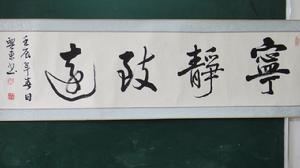 寧靜致遠
壬辰年春日